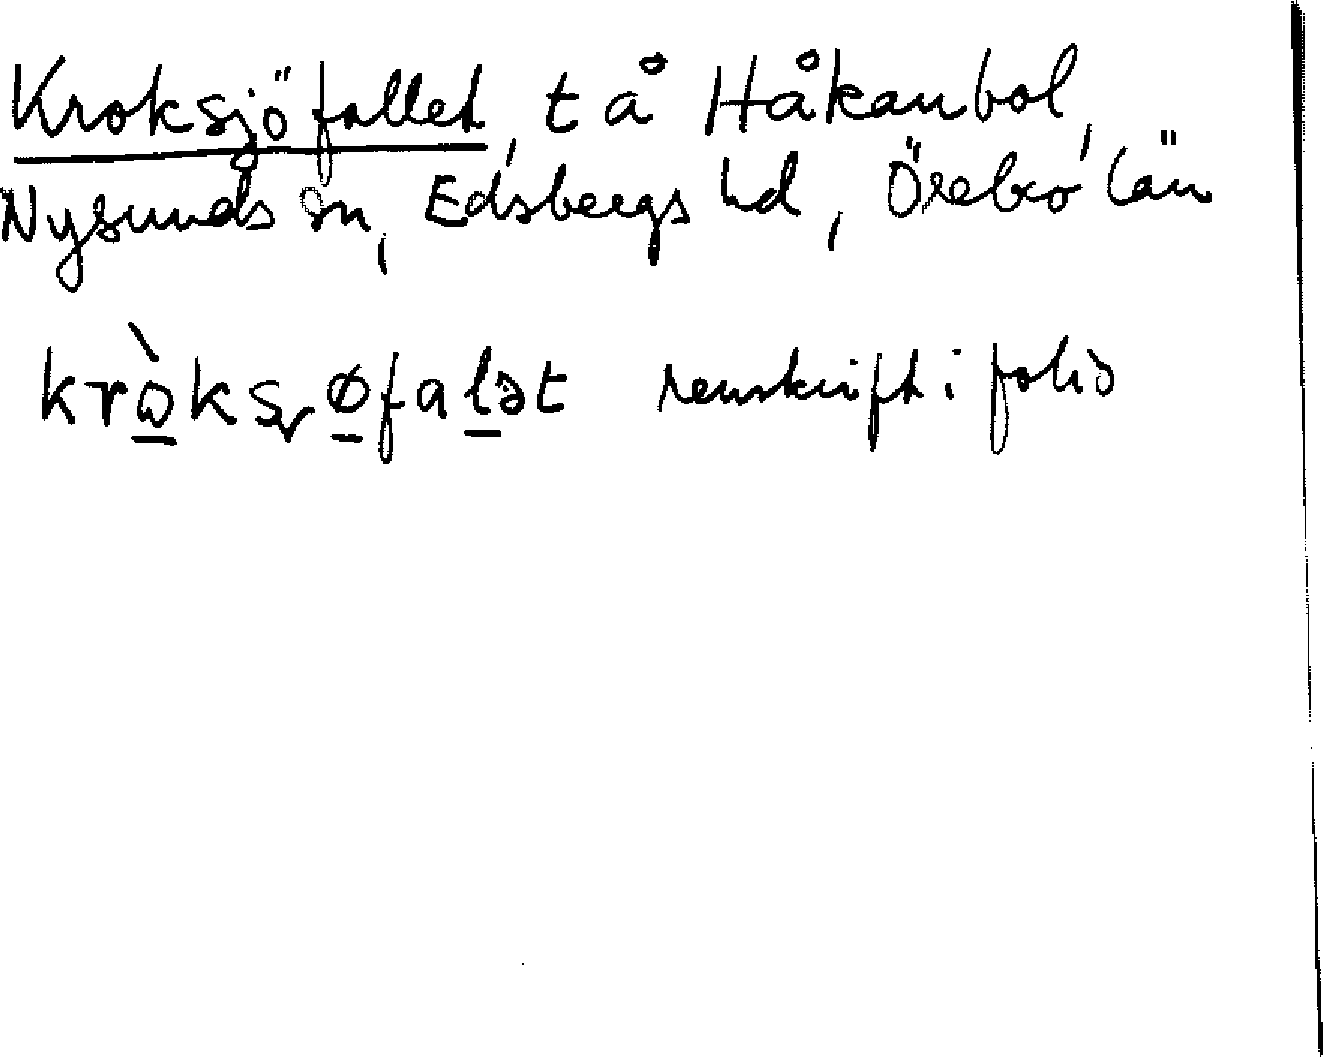 Kroksjöfallet, t å Håkanbol,
Nysunds sn, Edsbergs hd, Örebro län
kròksøfalət renskrift i folio